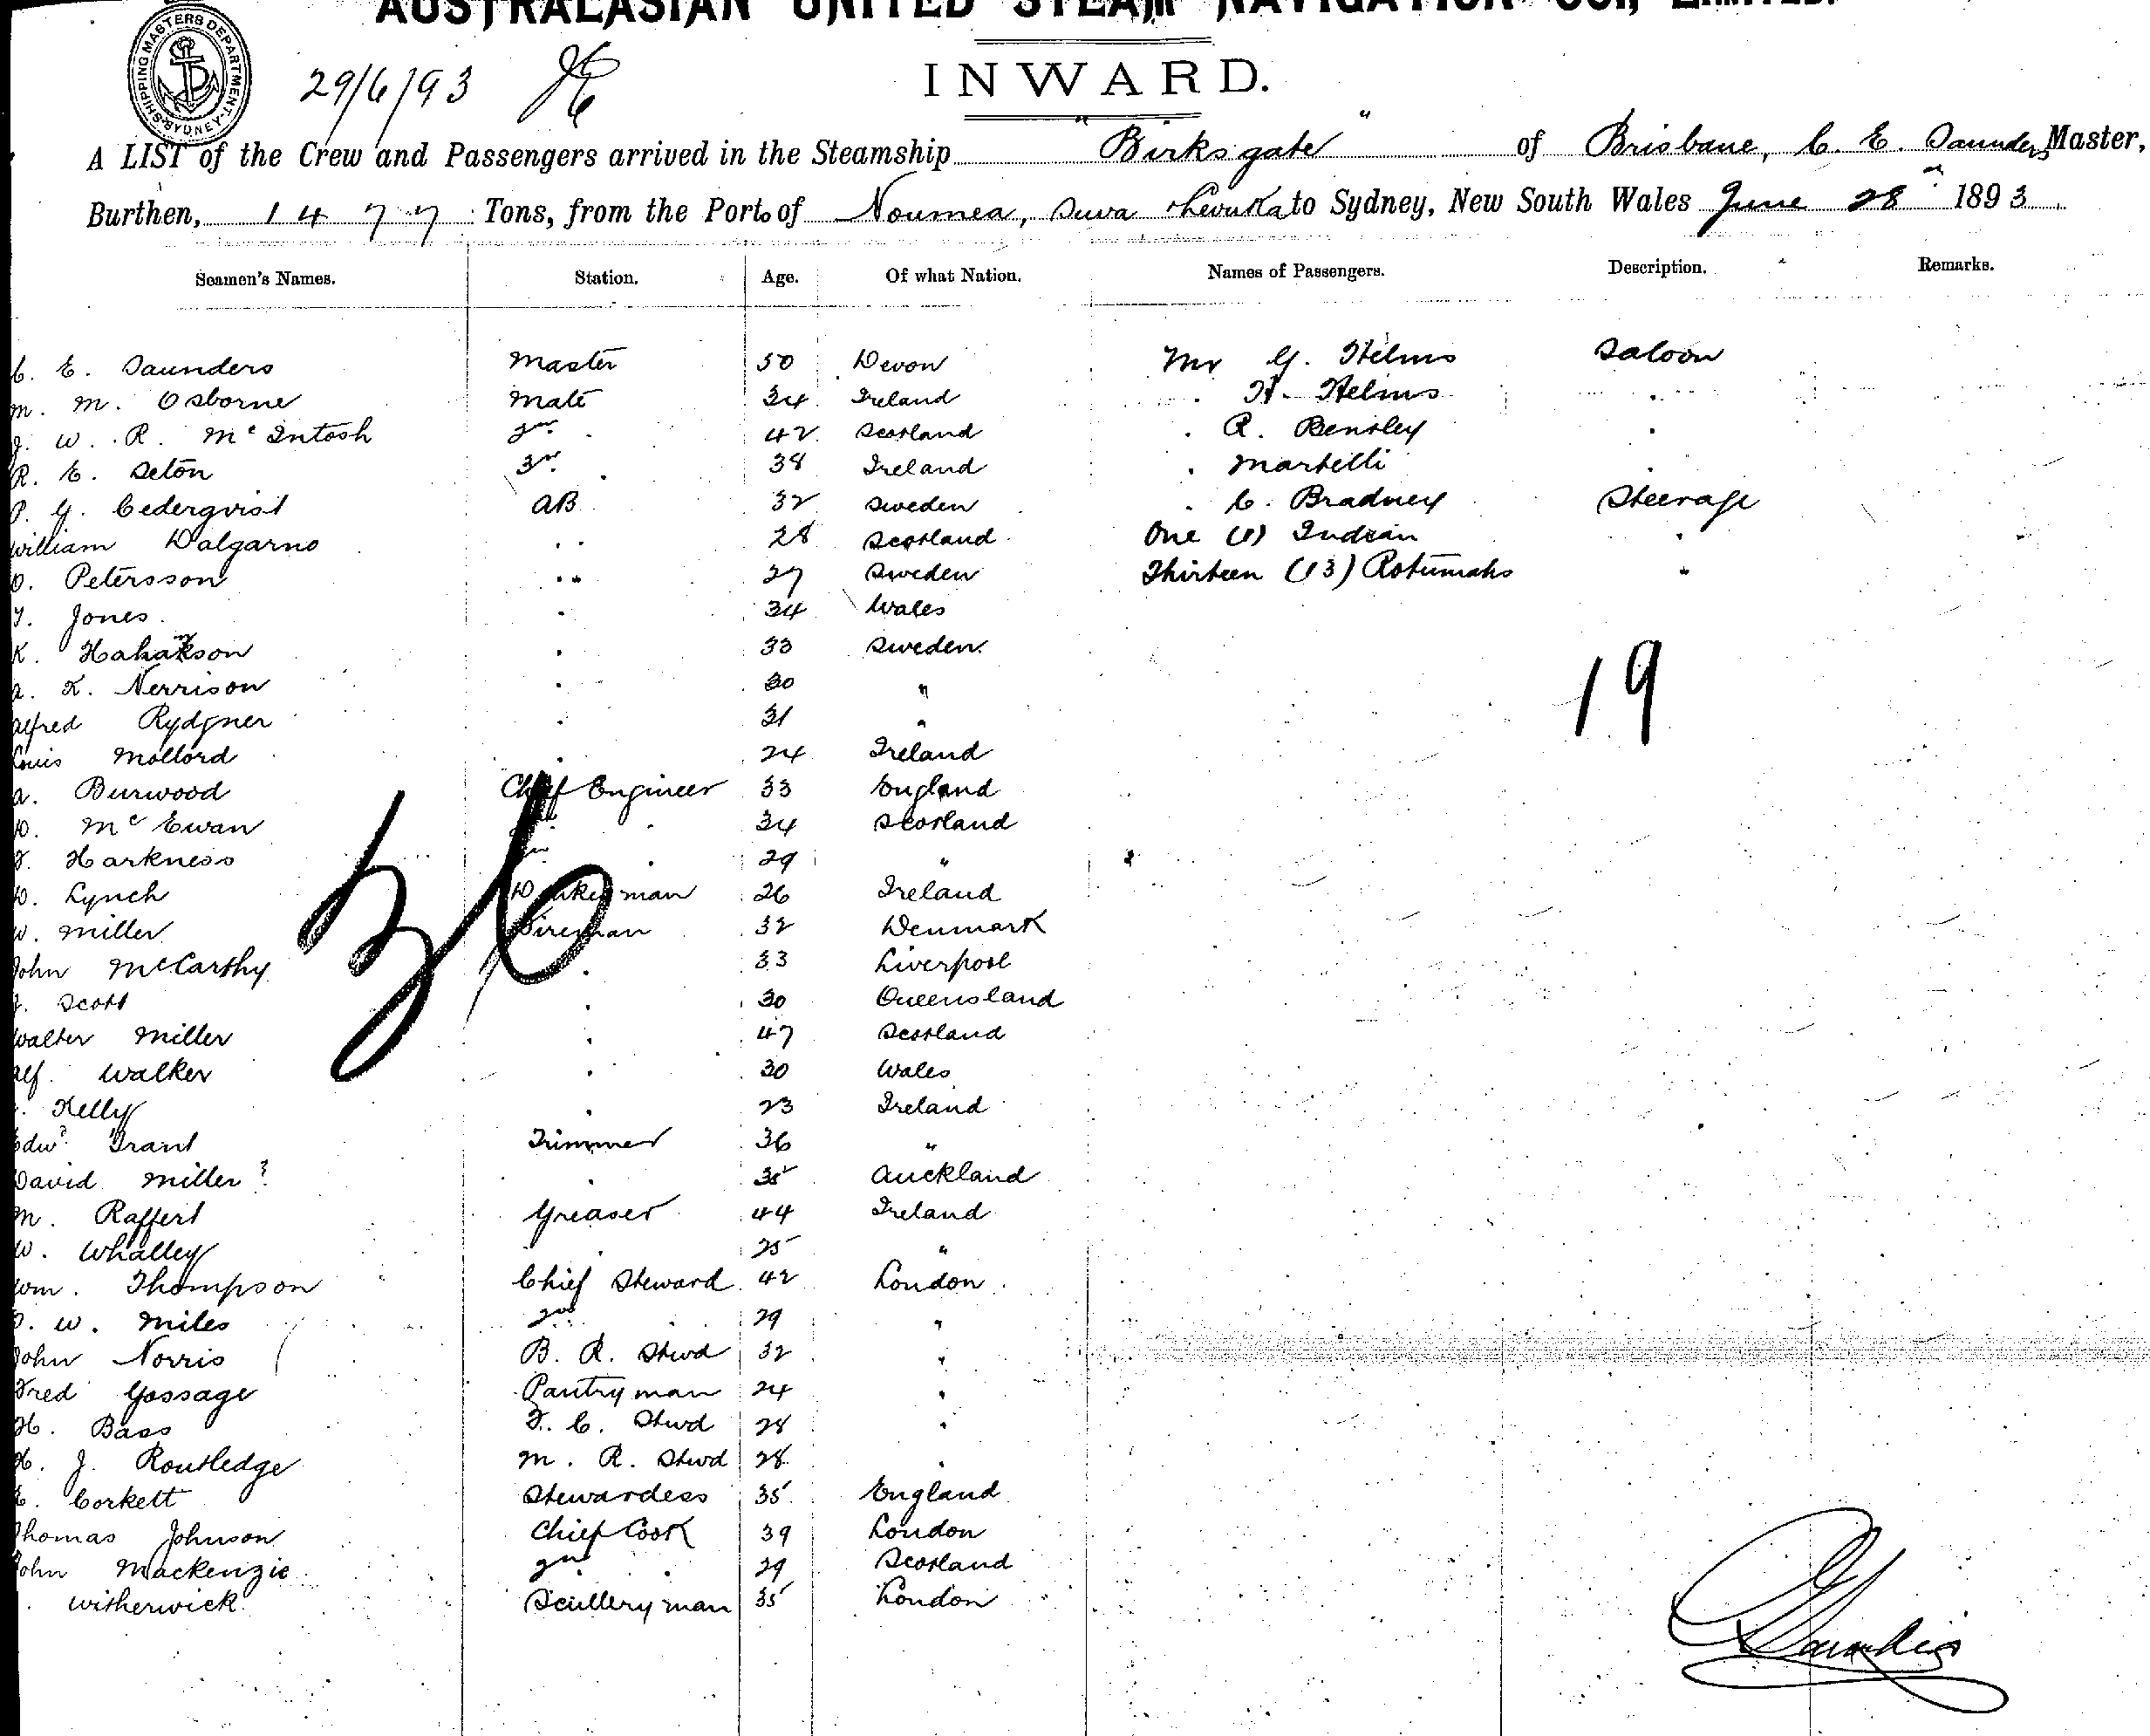 AUSTRALASIAN UNITED STEAM NAVIGATION CO., LIMITED.
SHIPPING MASTERS DEPARTMENT SYDNEY
29/6/93
INWARD.
A LIST of the Crew and Passengers arrived in the Steamship "Birksgate" of Brisbane, C. E. Saunders Master,
Burthen, 1477 Tons, from the Port of Noumea, Suva & Levuka to Sydney, New South Wales June 28th 1893
Seamen's Names. Station. Age. Of what Nation. Names of Passengers. Description. Remarks.
C. E. Saunders Master 50 Devon Mr G. Helms Saloon
M. M. Osborne Mate 34 Ireland " H. Helms "
J. W. R. McIntosh 2nd " 42 Scotland " R. Bensley "
R. E. Seton 3rd " 38 Ireland " Martelli "
P. G. Cederqvist AB 32 Sweden " C. Bradney Steerage
William Dalgarno " 28 Scotland One (1) Indian "
O. Petersson " 27 Sweden Thirteen (13) Rotumahs "
T. Jones " 34 Wales
K. Hakanson " 33 Sweden
19
A. K. Nerrison " 30 "
Alfred Rydgner " 31 "
Louis Mollord " 24 Ireland
A. Burwood Chief Engineer 33 England
D. McEwan 2nd " 34 Scotland
J. Harkness 3rd " 29 "
D. Lynch Donkeyman 26 Ireland
36
W. Miller Fireman 32 Denmark
John McCarthy " 33 Liverpool
J. Scott " 30 Queensland
Walter Miller " 47 Scotland
Alf. Walker " 30 Wales
Kelly " 23 Ireland
Edwd Grant Trimmer 36 "
David Miller ? " 35 Auckland
M. Raffert Greaser 44 Ireland
W. Whalley " 25 "
Wm. Thompson Chief Steward 42 London
W. Miles 2nd " 29 "
John Norris B. R. Stwd 32 "
Fred Gossage Pantryman 24 "
H. Bass F. C. Stwd 28 "
H. J. Routledge M. R. Stwd 28 "
E. Corkett Stewardess 35 England
Thomas Johnson Chief Cook 39 London
John Mackenzie 2nd " 29 Scotland
Witherwick Scullery man 35 London